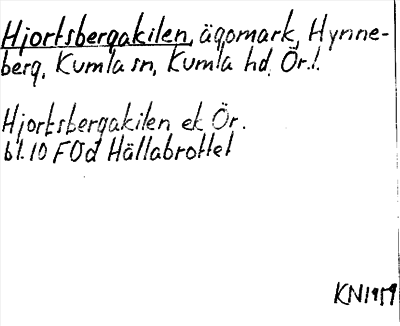 Hjortsbergakilen, ägomark, Hynne-
berg, Kumla sn, Kumla hd, Ör.l.
Hjortsbergakilen ek Ör.
bl.10 FOd Hällabrottet
KN1959